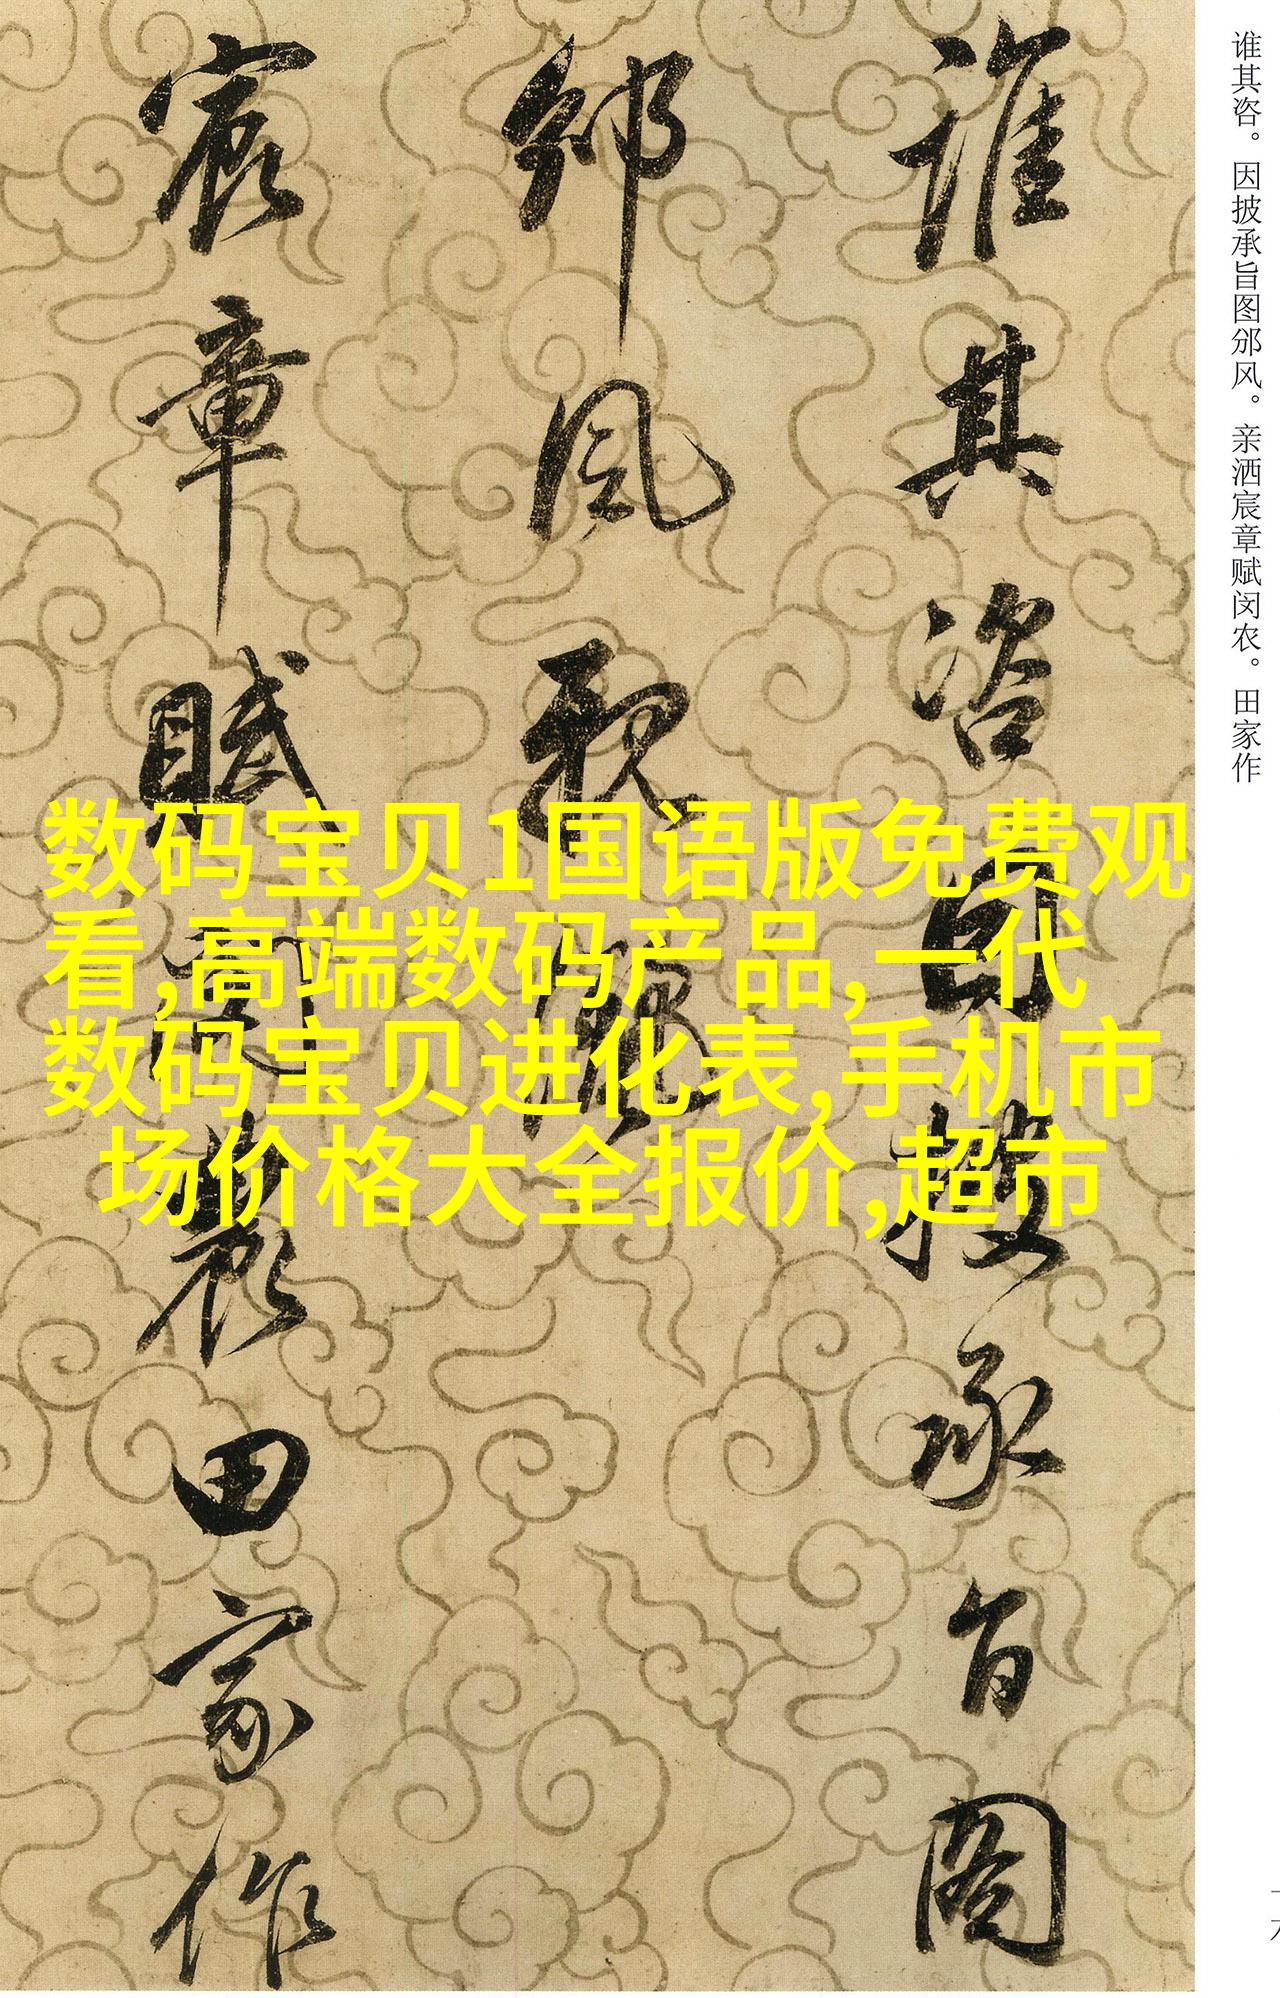 谁其咨。因披承旨图邠风。亲洒宸章赋闵农。田家作
誰其咨因披承旨圖
邠風親灑
宸章賦閔農田家作
数码宝贝1国语版免费观
看,高端数码产品,一代
数码宝贝进化表,手机市
场价格大全报价,超市